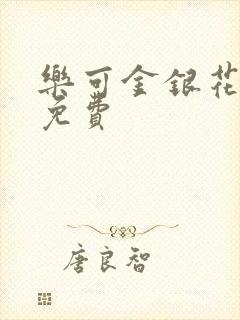 樂可金銀花
免費
唐良智